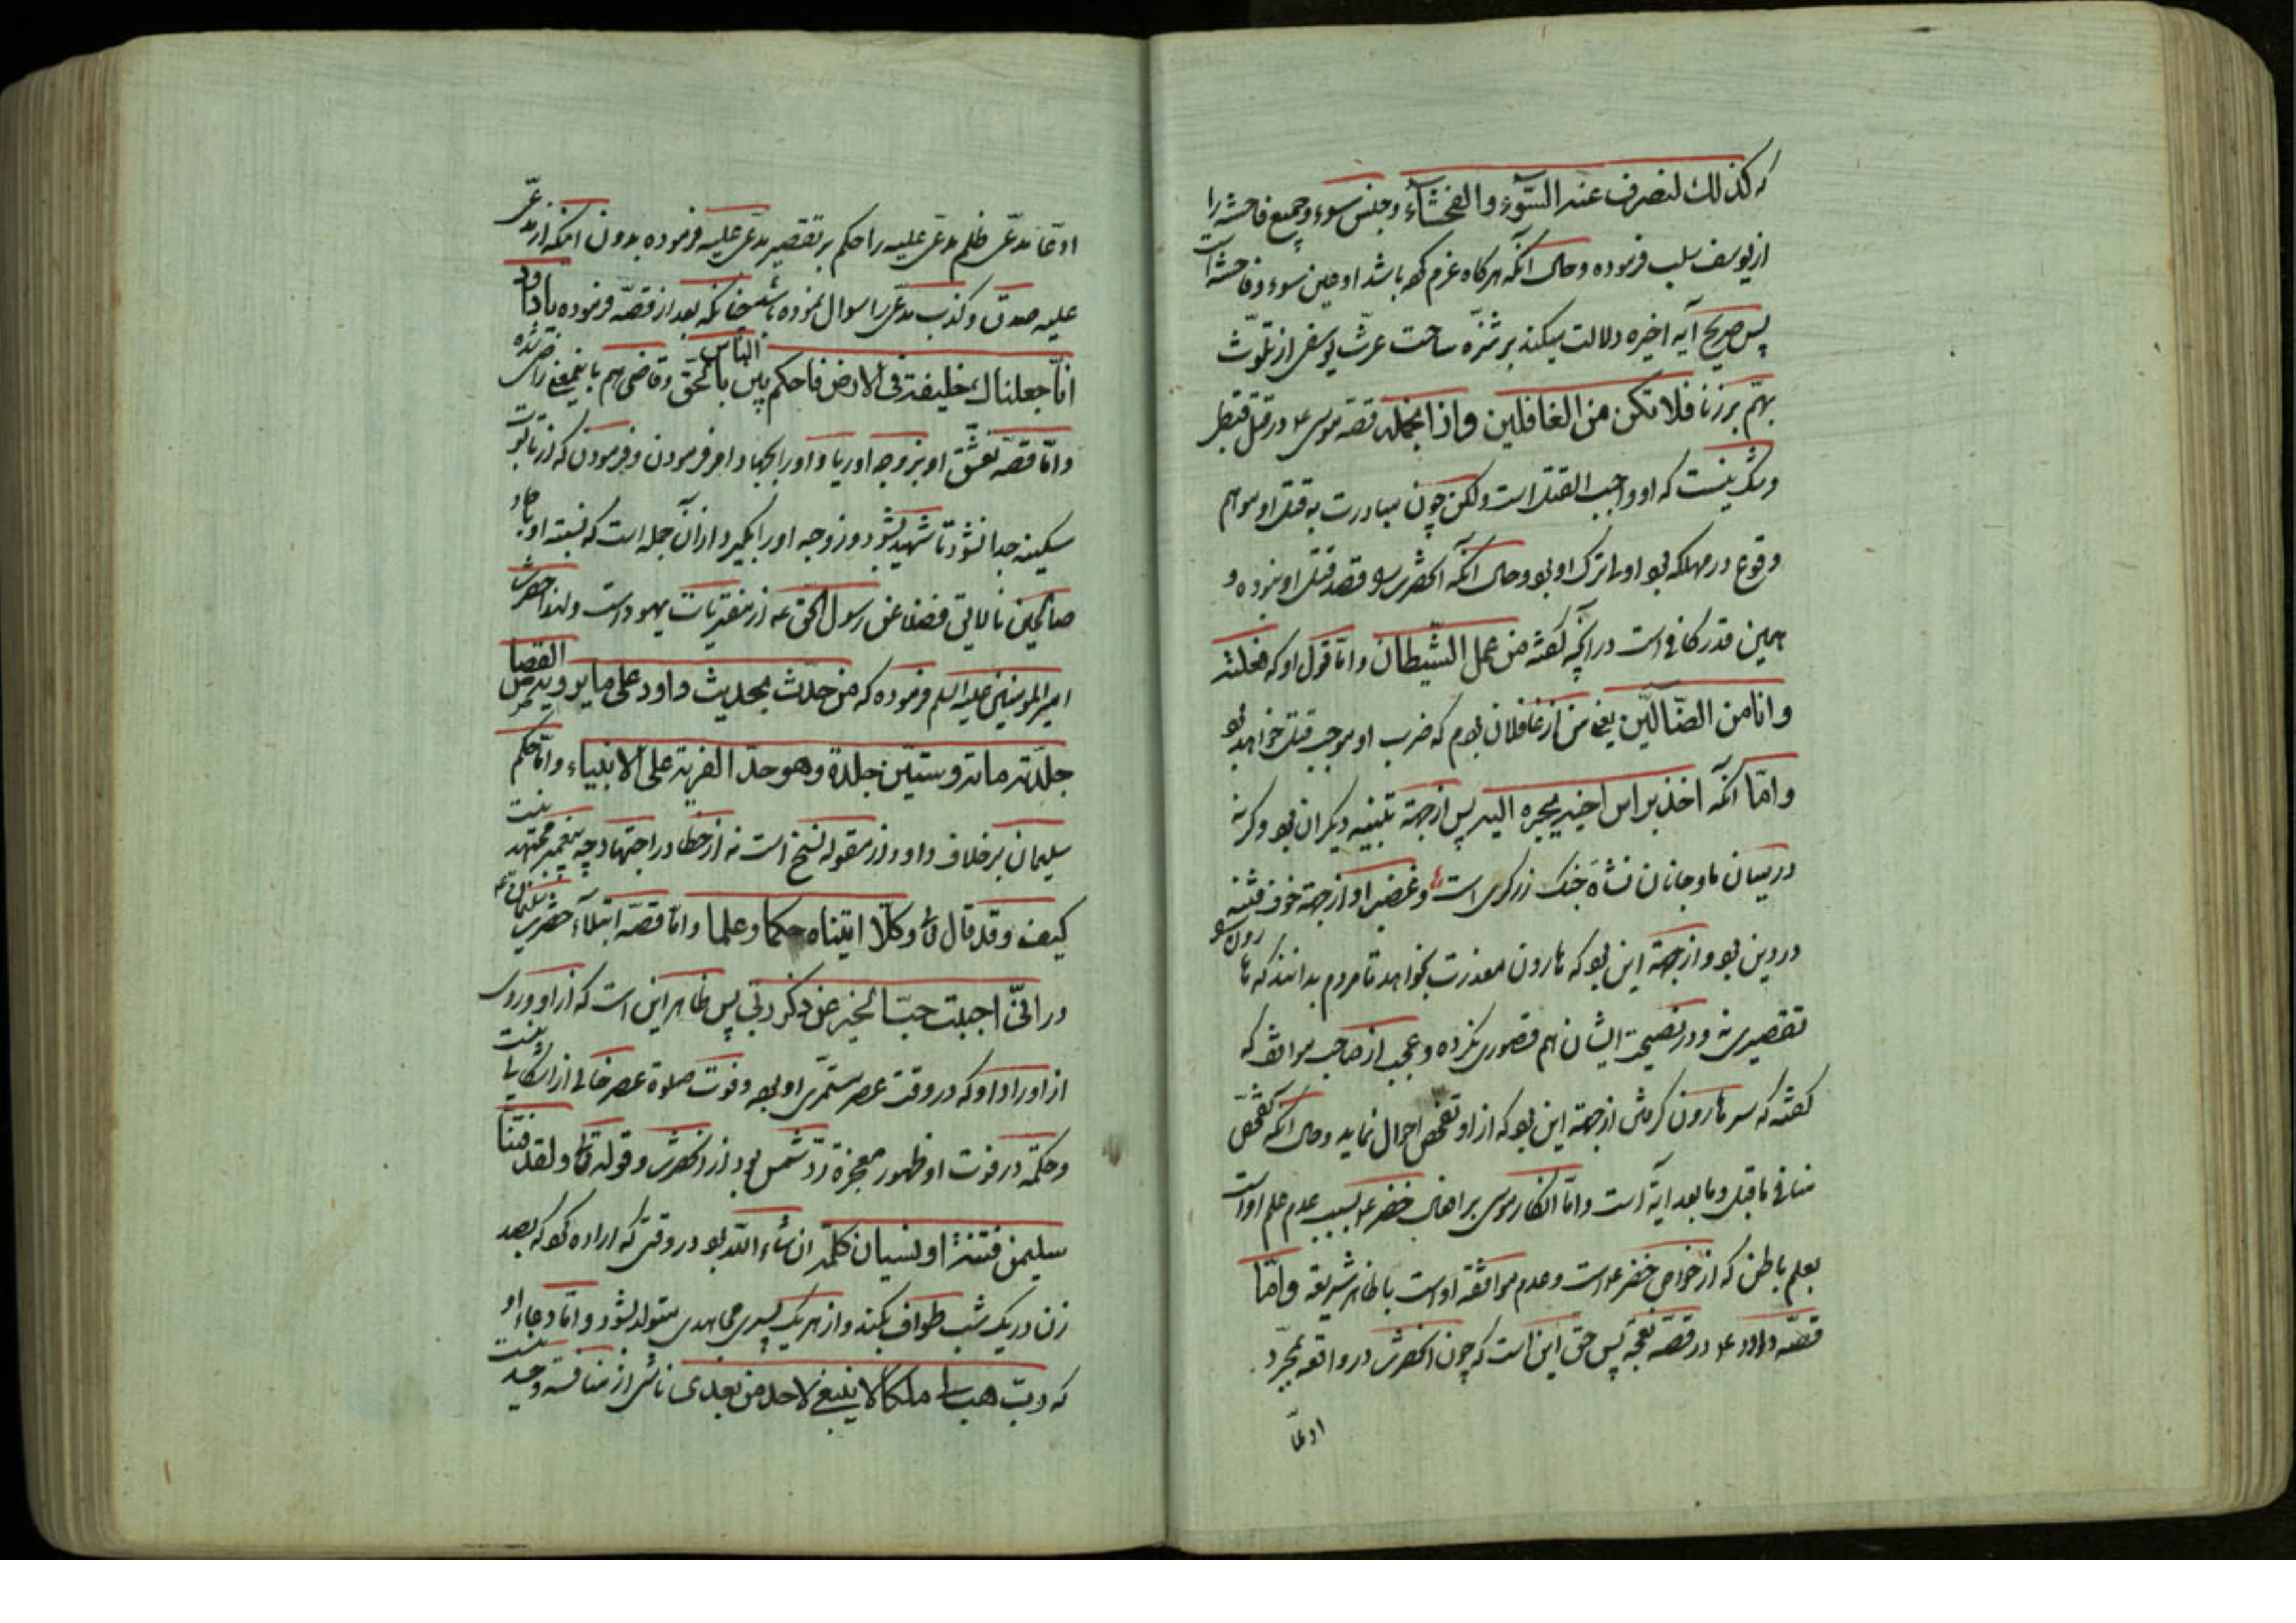 که كذلك لنصرف عنه السّوء والفحشآء وجنس سوء وجمیع فاحشه را
از یوسف سلب فرموده وحال آنکه هرکاه عزم کرده باشد او عین سوء وفاحشه است
پس صریح آیه اخیره دلالت میکند بر تنزّه ساحت عزّت یوسفی از تلوّث
بهمّ بر زنا فلا تكن من الغافلين واذا بجمله قصّه موسی ع در قتل قبطی
وشک نیست که او واجب القتل است ولکن چون مبادرت به قتل او موهم
وقوع در مهلکه بود اولی ترک او بود وحال آنکه آنحضرت قصد قتل او ننموده و
همین قدر کافی است در آنچه گفته من عمل الشّيطان وامّا قول او که فعلته
وانا من الضّآلّين یعنی من از غافلان بودم که ضرب او موجب قتل خواهد بود
وامّا آنکه اخذ براس اخيه يجره اليه پس از جهة تنبیه دیکران بود وکرنه
در میان ما وجانان نشاهٔ جنک زرکری است وغضب او از جهة خوف فتنه
در دین بود واز جهة این بود که هارون معذرت بخواهد تا مردم بدانند که هارون
تقصیری نه ودر نصیحة ایشان هم قصوری نکرده وعجب از صاحب مواقف که
گفته که سر هارون کرفتن از جهة این بود که از او تفحّص احوال نماید وحال آنکه تفحّص
منافی ما قبل وما بعد آیة است وامّا انکار موسی بر افعال خضر ع بسبب عدم علم او است
بعلم باطن که از خواصّ خضر ع است وعدم موافقة او است با ظاهر شریعة وامّا
قصّه داود ع در قصّه نعجه پس حق این است که چون آنحضرت در واقعه بمجرّد
ادعّا
ادعّا مدّعی ظلم مدّعی علیه را حکم بر تقصیر مدّعی علیه فرموده بدون آنکه از مدّعی
علیه صدق وکذب مدّعی را سوال نموده باشد چنانکه بعد از قصّه فرموده یا داود
انّا جعلناك خليفة فى الارض فاحكم بين الناس بالحقّ وقاضی هم باینمعنی راضی نشده
وامّا قصّه تعشّق او بزوجه اوریا واو را بجهاد امر فرمودن وفرمودن که از تابوت
سکینه جدا نشود تا شهید بشود وزوجه او را بکیرد از آن جمله است که نسبة او بآحاد
صالحین نالایق فضلا عن رسول الحق عه از مفتریات یهود است ولهذا حضرت
امیر المومنین علیه السلم فرموده که من حدّث بحديث داود على ما يرويه القصاص
جلدته مائة وستّين جلدة وهو حدّ الفرية على الانبياء وامّا حکم
سلیمان بر خلاف داود از مقوله نسخ است نه از خطا در اجتهاد چه پیغمبر مجتهد نیست
كيف وقد قال تع وكلّا اتيناه حكما وعلما وامّا قصّه ابتلآء حضرت سلیمان عه
در انّى احببت حبّ الخير عن ذكر ربّى پس ظاهر این است که از او وردی
از اوراد او که در وقت عصر مستمرّی او بود وفوت صلوة عصر خالی از اشکالی نیست
وحکمة در فوت او ظهور معجزهٔ ردّ شمس بود از آنحضرت وقوله تع ولقد فتنّا
سليمن فتنة او نسیان کلمه ان شاء الله بود در وقتی که اراده کرد که بصد
زن در یک شب طواف بکند واز هر یک پسری مجاهدی متولد بشود وامّا دعاء او
که ربّ هب لى ملكا لا ينبغى لاحد من بعدى ناشی از منافسه وحسد نیست